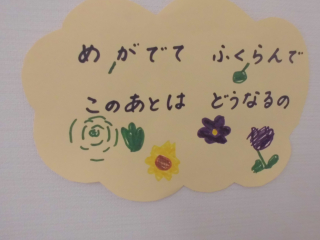 め がでてて ふくらんで
このあとは どうなるの